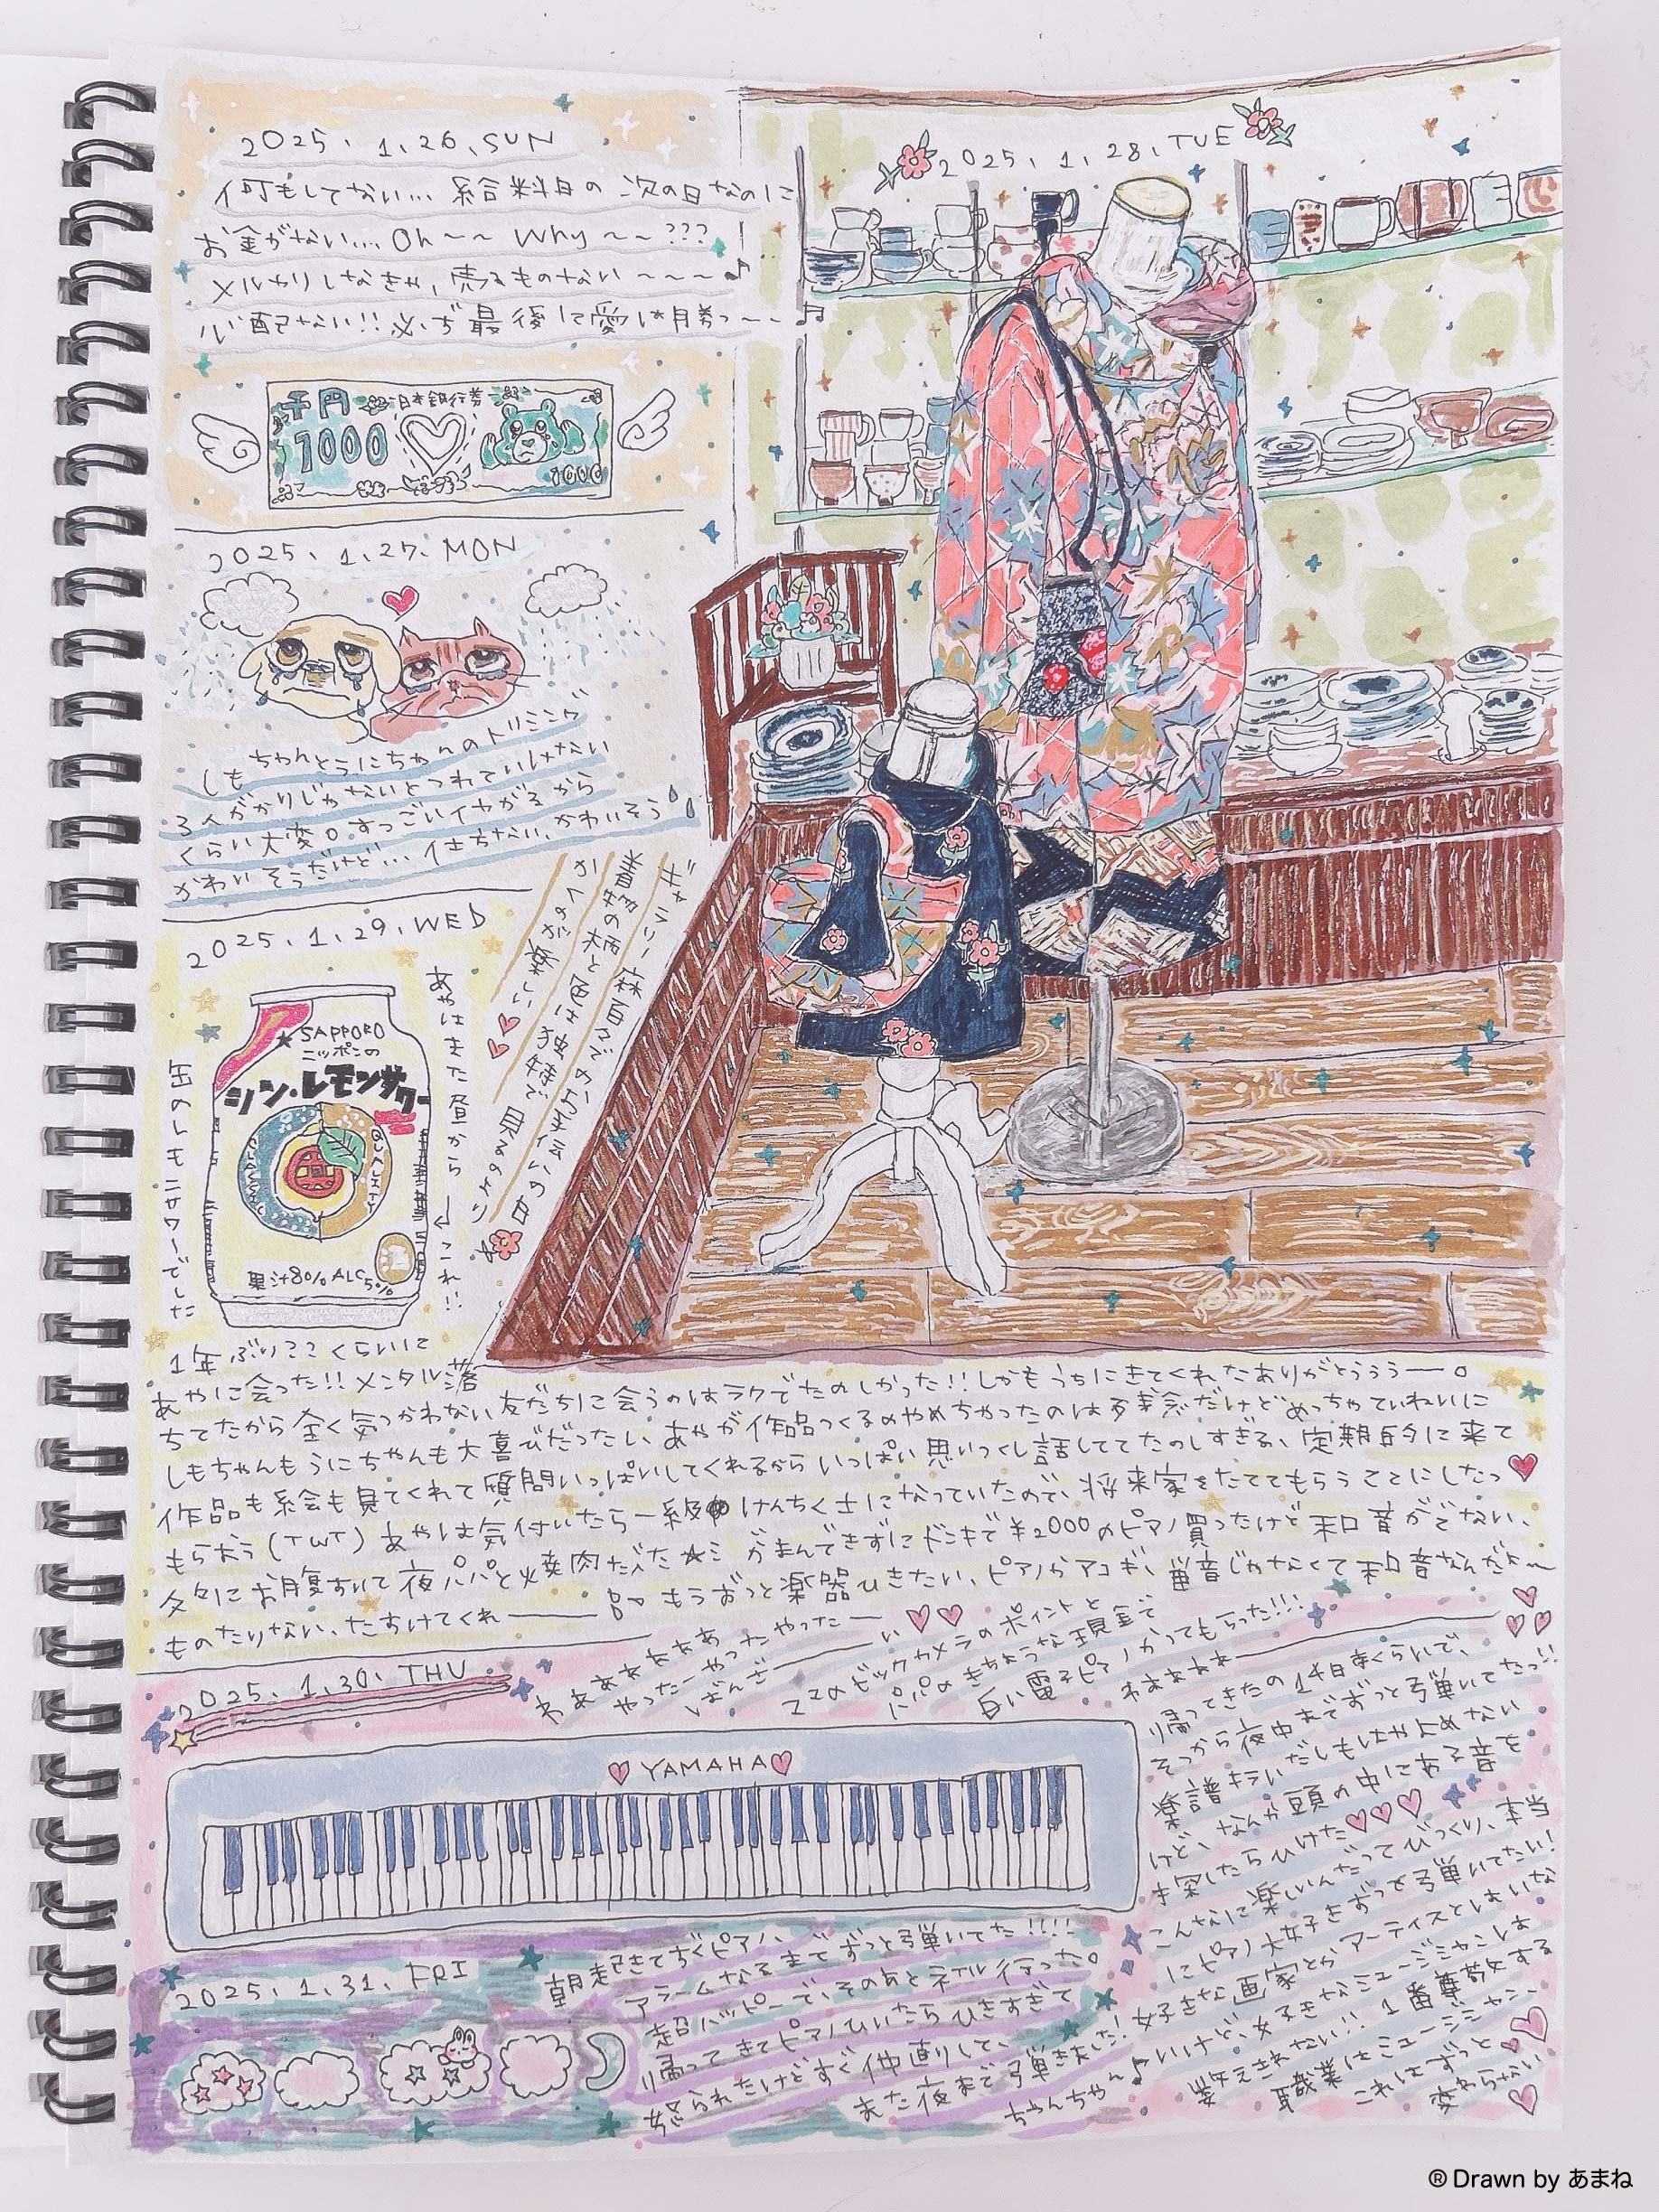 2025、1、26、SUN
何もしてない… 給料日の次の日なのに
お金がない… Oh〜〜 Why〜〜???
メルカリしなきゃ、売るものない〜〜〜♪
心配ない!! 必ず最後に愛は勝つ〜〜♫
千円 日本銀行券
1000
1000
2025、1、27、MON
しもちゃんとうにちゃんのトリミング
3人がかりじゃないとつれていけない
くらい大変。すっごいイヤがるから
かわいそうだけど… 仕方ない、かわいそう
2025、1、28、TUE
ギャラリー森百々でのお手伝いの日
着物の柄と色は独特で見るのより
かくのが楽しい♡♡
2025、1、29、WED
あやはきた昼から ←これ!!
缶のレモンサワーでした
SAPPORO
ニッポンの
シン・レモンサワー
果汁8% ALC5%
1年ぶり??くらいに
あやに会った!! メンタル落
ちてたから全く気つかわない友だちに会うのはラクでたのしかった!! しかもうちにきてくれたありがとううう━━。
しもちゃんもうにちゃんも大喜びだったし、あやが作品つくるのやめちゃったのは残念だけどめっちゃていねいに
作品も絵も見てくれて質問いっぱいしてくれるからいっぱい思いっくし話しててたのしすぎる、定期的に来て
もらおう(TωT) あやは気付いたら一級けんちく士になっていたので、将来家をたててもらうことにしたっ♥
久々にお腹すいて夜パパと焼肉だった★ミ がまんできずにドンキで¥2000のピアノ買ったけど和音がでない、
ものたりない、たすけてくれ━━ もうずっと楽器ひきたい、ピアノかアコギ、単音じゃなくて和音なんだよ〜
2025、1、30、THU
わあああああああ
やったーやったやったー
ばんざーーーい♡♡
ママのビックカメラのポイントと
パパのきちょうな現金で
白い電子ピアノかってもらった!!!
わああああーーー
♡YAMAHA♡
帰ってきたの14時半くらいで、
そっから夜中までずっと弾いてたっ!!
楽譜キライだしもはやよめない
けど、なんか頭の中にある音を
探したらひけた♡♡♡
こんなに楽しいんだってびっくり、本当
にピアノ大好きずっと弾いてたい!
好きな画家とかアーティストはいな
いけど、好きなミュージシャンは
数えきれない!! 1番尊敬する
職業はミュージシャン
これはずっと♡
変わらない♡
2025、1、31、FRI
朝起きてすぐピアノ、
アラームなるまでずっと弾いてた!!!!
超ハッピーで、そのあとネイル行った。
帰ってきてピアノひいたらひきすぎて
怒られたけどすぐ仲直りして、
また夜まで弾きました!
ちゃんちゃん♪
®Drawn by あまね